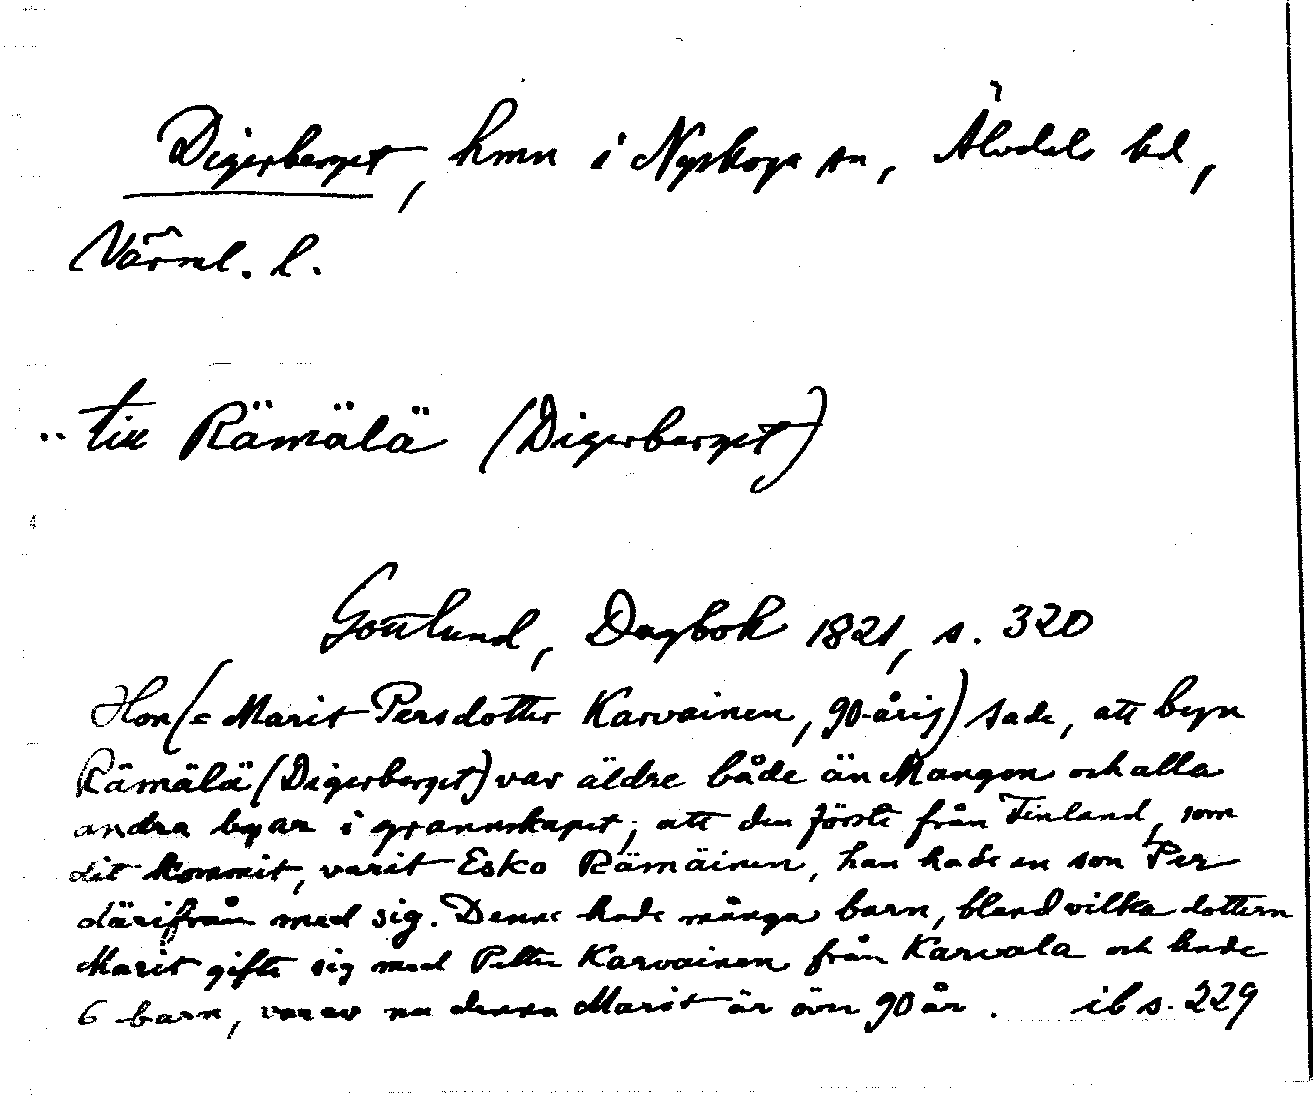 Digerberget, hmn i Nyskoga sn, Älvdals hd,
Värml. l.
.. till Rämälä (Digerberget)
Gottlund, Dagbok 1821, s. 320
Hon (= Marit Persdotter Karvainen, 90-årig) sade, att byn
Rämälä (Digerberget) var äldre både än Mangen och alla
andra byar i grannskapet; att den förste från Finland, som
dit kommit, varit Esko Rämäinen, han hade en son Per
därifrån med sig. Denne hade många barn, bland vilka dottern
Marit gifte sig med Petter Karvainen från Karvala och hade
6 barn, varav nu denna Marit är över 90 år. ib s. 229